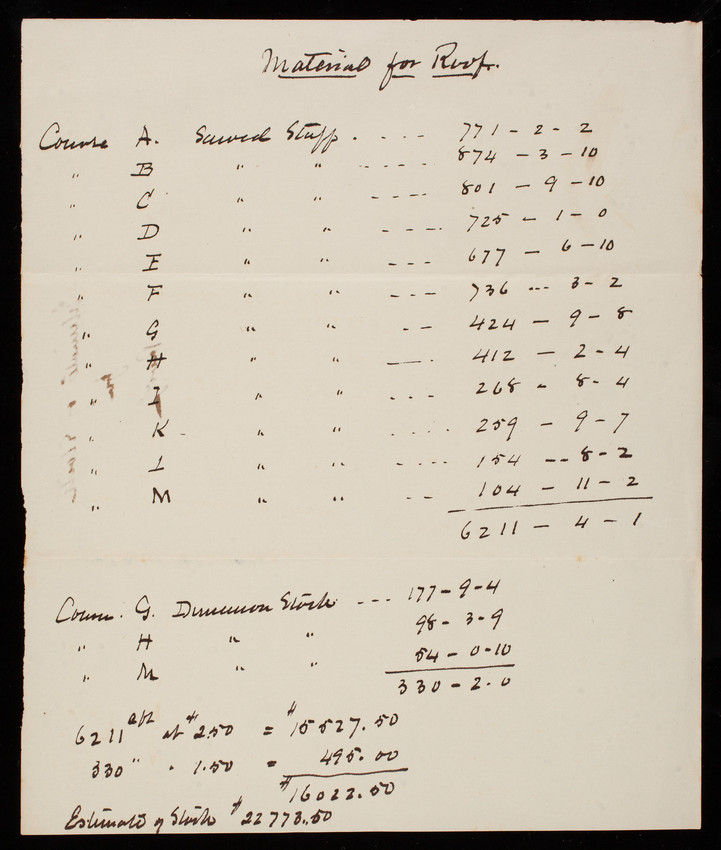 Material for Roof.
Course A. Sawed Stuff . - - - 771 - 2 - 2
" B " " - - - - - 874 - 3 - 10
" C " " - - - - 801 - 9 - 10
" D " " - - - - 725 - 1 - 0
" E " " - - - 677 - 6 - 10
" F " " - - - 736 --- 3 - 2
" G " " - - 424 - 9 - 8
" H " " — - 412 - 2 - 4
" I " " - - - 268 - 8 - 4
" K - " " - - - - 259 - 9 - 7
" L " " - - - - 154 -- 8 - 2
" M " " - - 104 - 11 - 2
6211 - 4 - 1
Course. G. Dimension Stock --- 177 - 9 - 4
" H " " 98 - 3 - 9
" M " " 54 - 0 - 10
330 - 2 - 0
6211 at $2.50 = $15527.50
330 " " 1.50 = 495.00
$16022.50
Estimate of Stock $22773.50